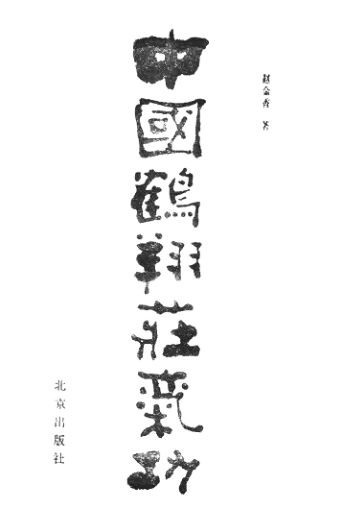 赵金香 著
中國鶴翔莊氣功
北京出版社